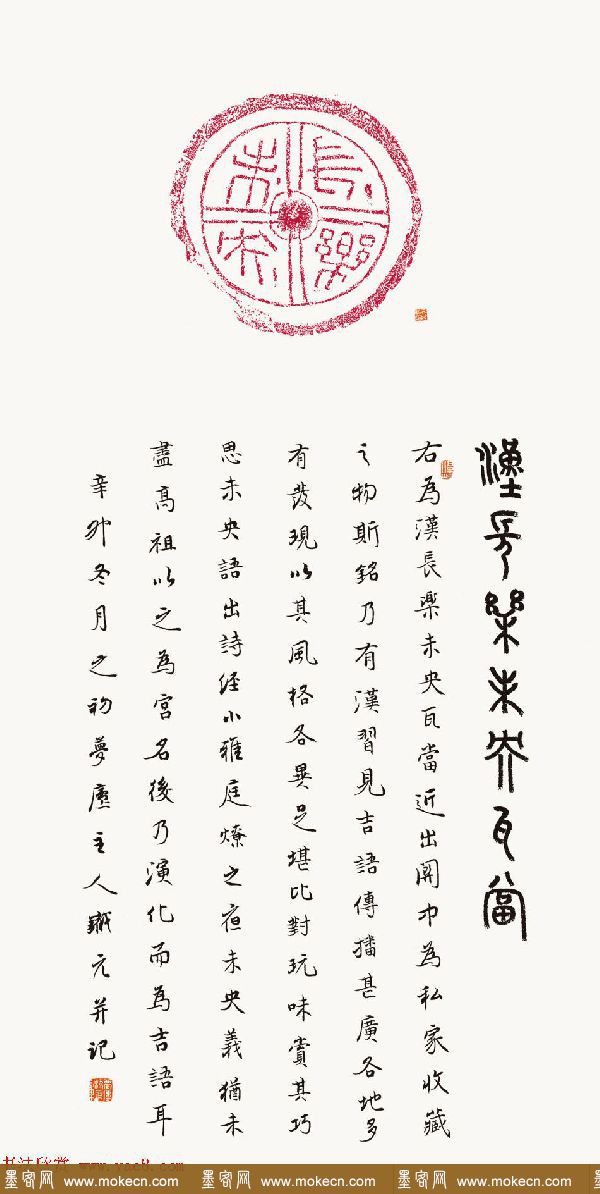 長樂
未央
漢長樂未央瓦當
右為漢長樂未央瓦當近出關中為私家收藏
之物斯銘乃有漢習見吉語傳播甚廣各地多
有發現以其風格各異足堪比對玩味賞其巧
思未央語出詩經小雅庭燎之夜未央義猶未
盡高祖以之為宮名後乃演化而為吉語耳
辛卯冬月之初夢廬主人鐵元并记
书法欣赏 www.yac8.com
墨客网 www.mokecn.com 墨客网 www.mokecn.com 墨客网 www.mokecn.com